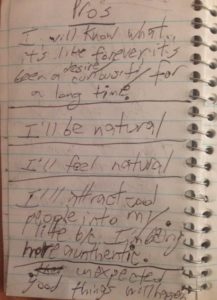 Pros
I will know what
it's like forever it's
been a desire/curiousity for
a long time.
I'll be natural
I'll feel natural
I'll attract good
people into my
life bc I'm being
more authentic.
unexpected
good things will happen